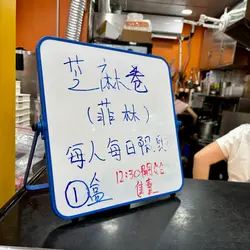 芝麻卷
(菲林)
每人每日限買
①盒
12:30開始
售賣